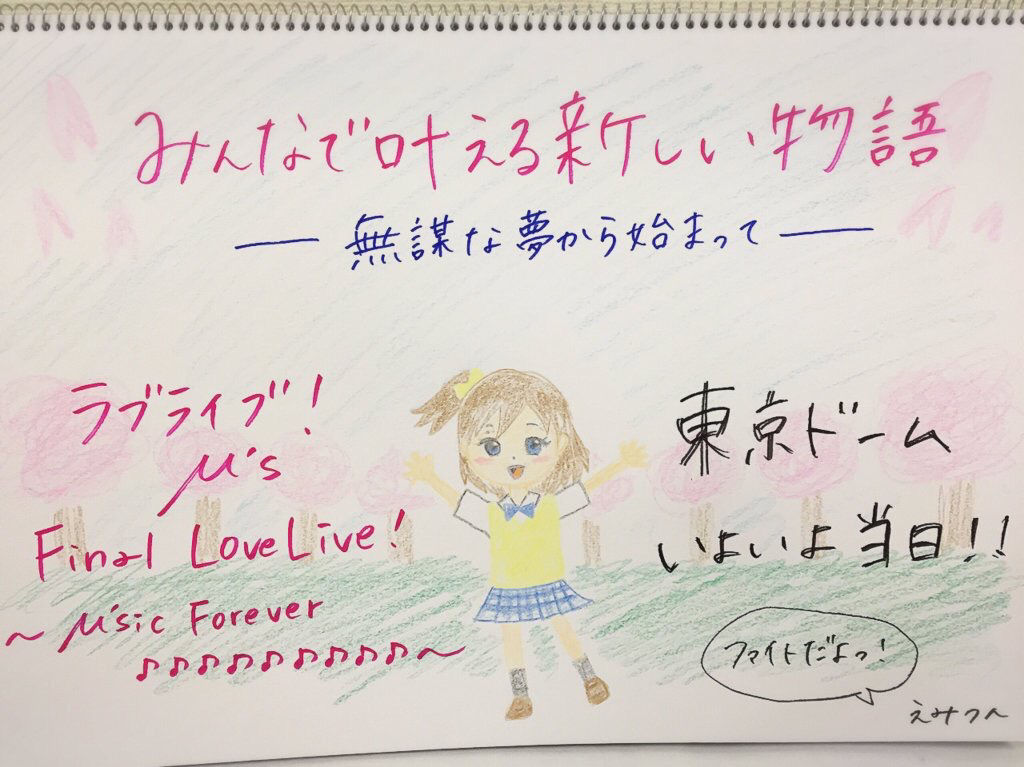 みんなで叶える新しい物語
― 無謀な夢から始まって ―
ラブライブ!
μ's
Final LoveLive!
~μ'sic Forever
♪♪♪♪♪♪♪♪♪~
東京ドーム
いよいよ当日!!
ファイトだよっ!
えみつん